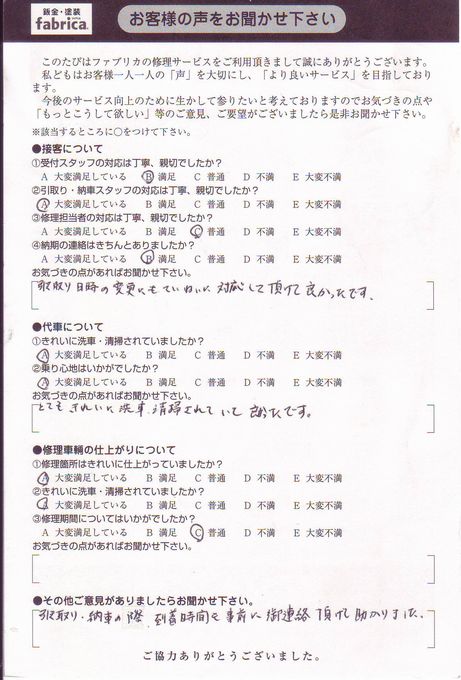 鈑金・塗装
fabrica.
お客様の声をお聞かせ下さい
このたびはファブリカの修理サービスをご利用頂きまして誠にありがとうございます。
私どもはお客様一人一人の「声」を大切にし、「より良いサービス」を目指しており
ます。
今後のサービス向上のために生かして参りたいと考えておりますのでお気づきの点や
「もっとこうして欲しい」等のご意見、ご要望がございましたら是非お聞かせ下さい。
※該当するところに○をつけて下さい。
●接客について
①受付スタッフの対応は丁寧、親切でしたか？
A 大変満足している B 満足 C 普通 D 不満 E 大変不満
②引取り・納車スタッフの対応は丁寧、親切でしたか？
A 大変満足している B 満足 C 普通 D 不満 E 大変不満
③修理担当者の対応は丁寧、親切でしたか？
A 大変満足している B 満足 C 普通 D 不満 E 大変不満
④納期の連絡はきちんとありましたか？
A 大変満足している B 満足 C 普通 D 不満 E 大変不満
お気づきの点があればお聞かせ下さい。
引取り日時の変更にもていねいに対応して頂けて良かったです。
●代車について
①きれいに洗車・清掃されていましたか？
A 大変満足している B 満足 C 普通 D 不満 E 大変不満
②乗り心地はいかがでしたか？
A 大変満足している B 満足 C 普通 D 不満 E 大変不満
お気づきの点があればお聞かせ下さい。
とてもきれいに洗車、清掃されていて良かったです。
●修理車輛の仕上がりについて
①修理箇所はきれいに仕上がっていましたか？
A 大変満足している B 満足 C 普通 D 不満 E 大変不満
②きれいに洗車・清掃されていましたか？
A 大変満足している B 満足 C 普通 D 不満 E 大変不満
③修理期間についてはいかがでしたか？
A 大変満足している B 満足 C 普通 D 不満 E 大変不満
お気づきの点があればお聞かせ下さい。
●その他ご意見がありましたらお聞かせ下さい。
引取り・納車の際 到着時間を事前に御連絡頂けて助かりました。
ご協力ありがとうございました。